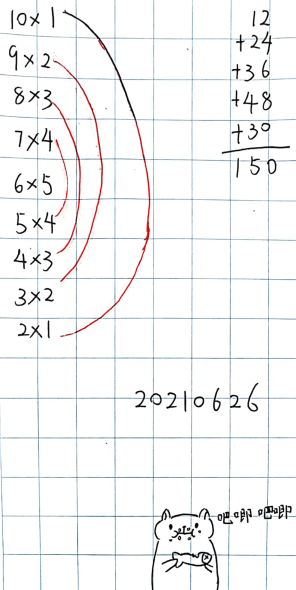 10×1
9×2
8×3
7×4
6×5
5×4
4×3
3×2
2×1
12
+24
+36
+48
+30
150
20210626
吧唧吧唧